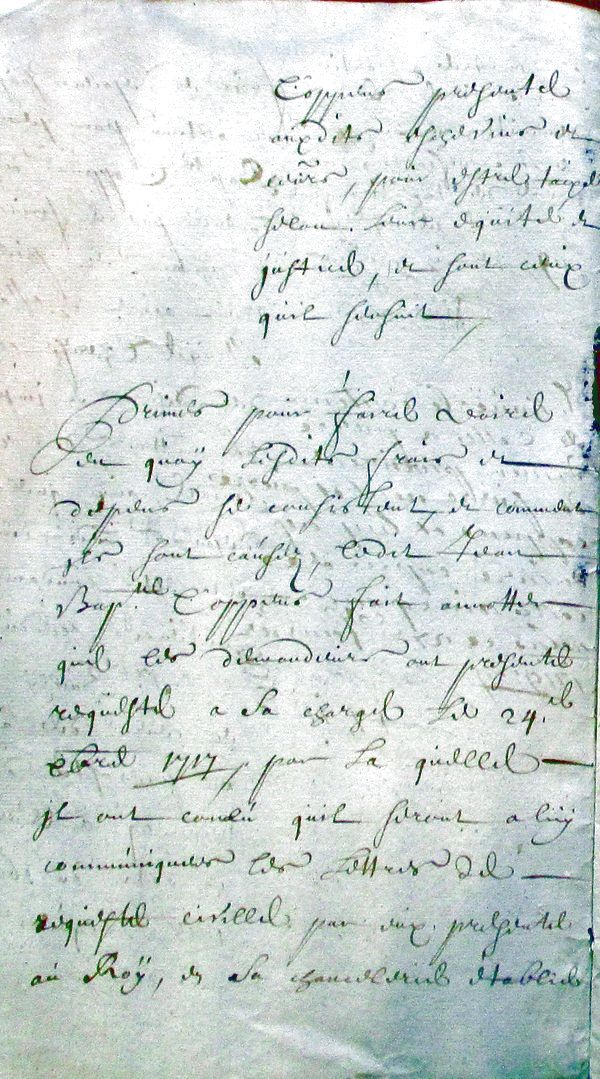 Coppens presente
auxdits eschevins et
coeurs, pour estre taxes
selon leur equite et
justice, et sont ceux
quil sensuit
Primes pour faire voire
en quoy lesdits frais et
depens se consistent, et comment
jls sont causez, ledit Jean
Bap.te Coppens fait annotter
que les demandeurs ont presente
requeste a sa charge le 24.e
xbre 1717, par la quelle
jl ont conclu quil seront a luy
communiquees les lettres de
requeste civille par eux presente
au Roÿ, en sa chancelerie establie